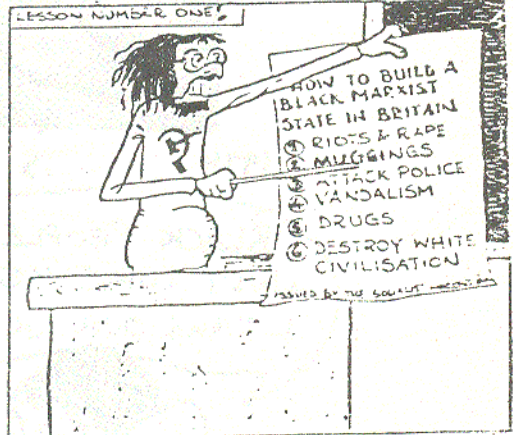 LESSON NUMBER ONE!
HOW TO BUILD A
BLACK MARXIST
STATE IN BRITAIN
① RIOTS & RAPE
② MUGGINGS
③ ATTACK POLICE
④ VANDALISM
⑤ DRUGS
⑥ DESTROY WHITE
CIVILISATION
ISSUED BY THE